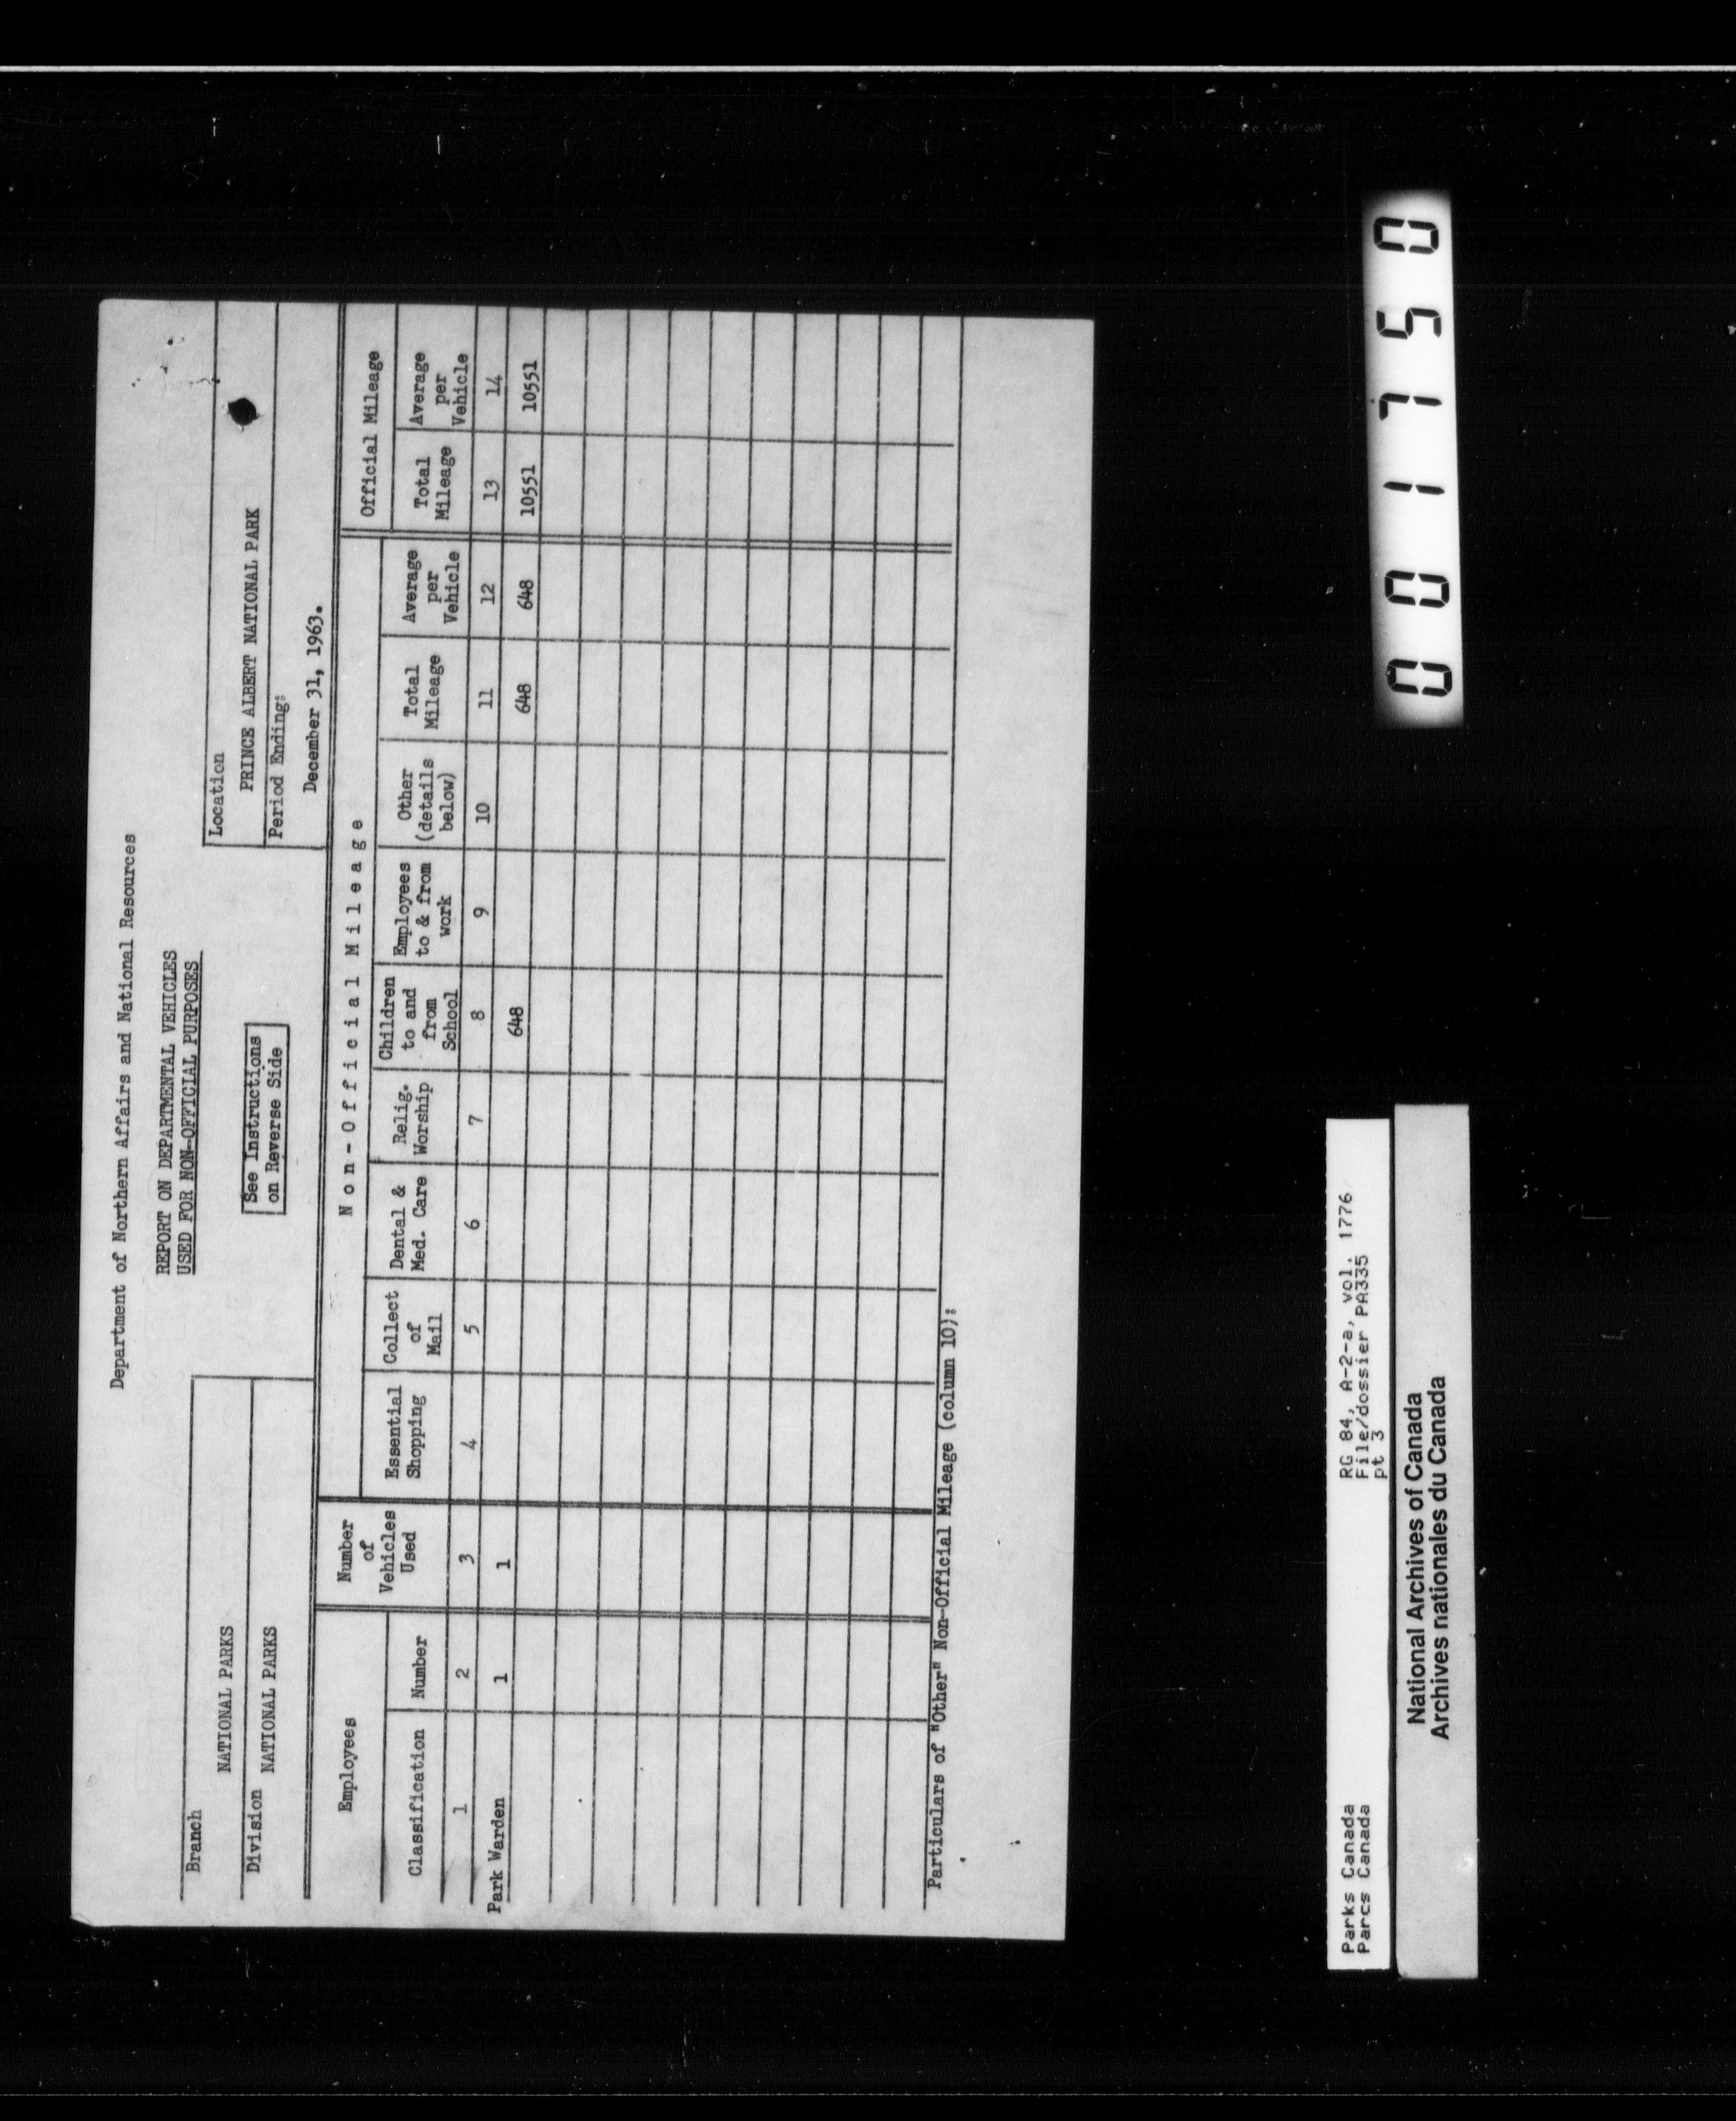 Department of Northern Affairs and National Resources
REPORT ON DEPARTMENTAL VEHICLES
USED FOR NON-OFFICIAL PURPOSES
Branch
NATIONAL PARKS
Division NATIONAL PARKS
See Instructions
on Reverse Side
Location
PRINCE ALBERT NATIONAL PARK
Period Ending:
December 31, 1963.
Employees
Number
of
Vehicles
Used
Non-Official Mileage
Official Mileage
Classification
Number
Essential
Shopping
Collect
of
Mail
Dental &
Med. Care
Relig.
Worship
Children
to and
from
School
Employees
to & from
work
Other
(details
below)
Total
Mileage
Average
per
Vehicle
Total
Mileage
Average
per
Vehicle
1 2 3 4 5 6 7 8 9 10 11 12 13 14
Park Warden 1 1 648 648 648 10551 10551
Particulars of "Other" Non-Official Mileage (column 10):
Parks Canada
Parcs Canada
RG 84, A-2-a, vol. 1776
File/dossier PA335
pt 3
National Archives of Canada
Archives nationales du Canada
001750